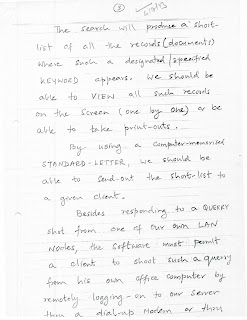 ③
The search will produce a short-
list of all the records (documents)
where such a designated/specified
KEYWORD appears. We should be
able to VIEW all such records
on the screen (one by one) or be
able to take print-outs.
By using a computer-memorised
STANDARD-LETTER, we should be
able to send-out the short-list to
a given client.
Besides responding to a QUERRY
shot from one of our own LAN
Nodes, the software must permit
a client to shoot such a query
from his own office computer by
remotely logging-on to our server
thru a dial-up Modem or thru